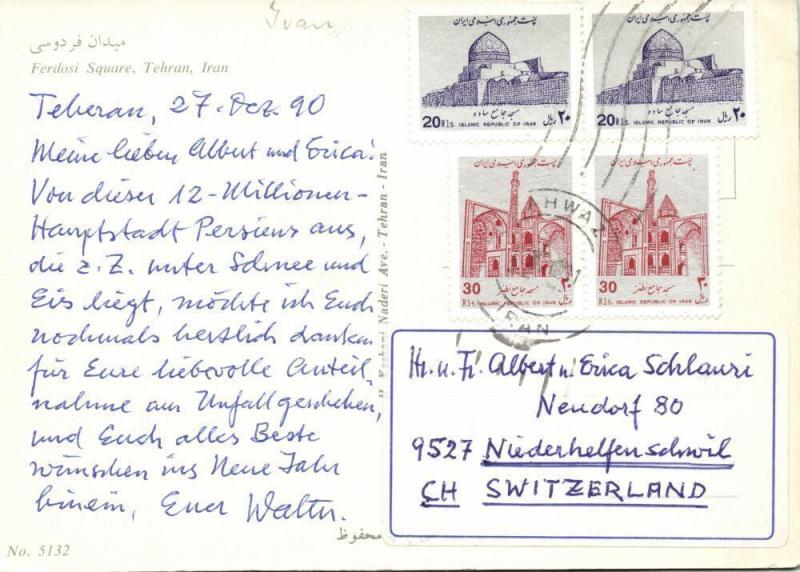 Ivan
میدان فردوسی
Ferdosi Square, Tehran, Iran
Teheran, 27. Dez. 90
Meine lieben Albert und Erica!
Von dieser 12-Millionen-
Hauptstadt Persiens aus,
die z.Z. unter Schnee und
Eis liegt, möchte ich Euch
nochmals herzlich danken
für Eure liebevolle Anteil-
nahme am Unfallgeschehen,
und Euch alles Beste
wünschen ins Neue Jahr
hinein, Euer Walter.
No. 5132
محفوظ
Naderi Ave. - Tehran - Iran
پست جمهوری اسلامی ایران
مسجد جامع ساوه
20 Rls. ISLAMIC REPUBLIC OF IRAN ۲۰ ریال
پست جمهوری اسلامی ایران
مسجد جامع ساوه
20 Rls. ISLAMIC REPUBLIC OF IRAN ۲۰ ریال
پست جمهوری اسلامی ایران
مسجد جامع نطنز
30 Rls. ISLAMIC REPUBLIC OF IRAN ۳۰ ریال
پست جمهوری اسلامی ایران
مسجد جامع نطنز
30 Rls. ISLAMIC REPUBLIC OF IRAN ۳۰ ریال
HWAZ
IRAN
Hr. u. Fr. Albert u. Erica Schlauri
Neudorf 80
9527 Niederhelfenschwil
CH SWITZERLAND